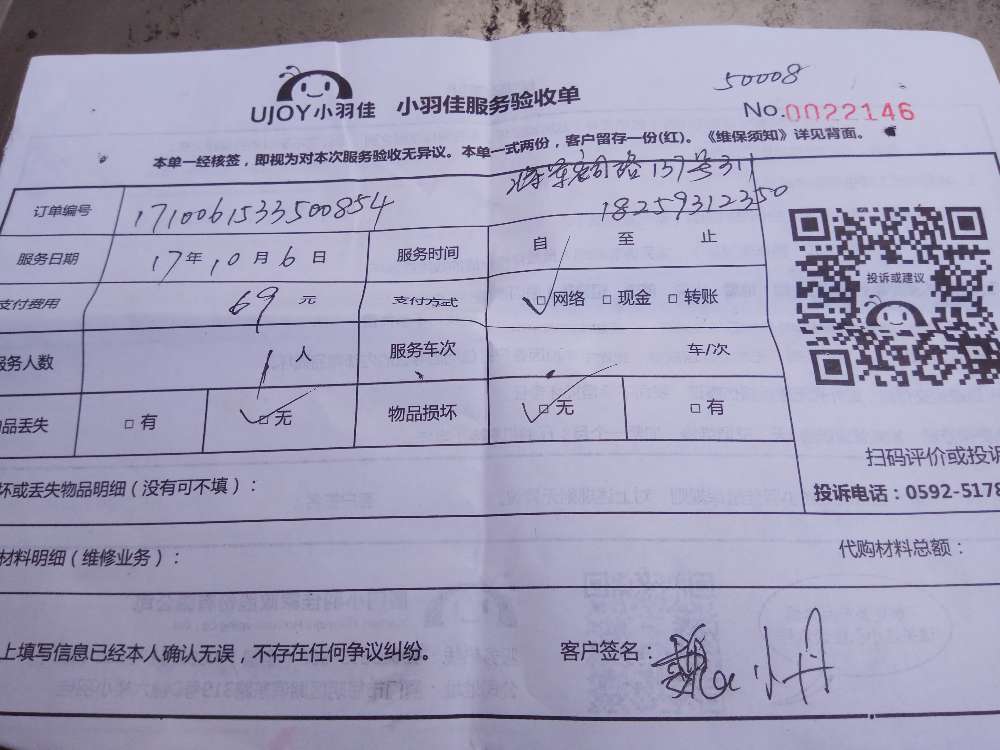 50008
UJOY小羽佳 小羽佳服务验收单
No.0022146
本单一经核签，即视为对本次服务验收无异议。本单一式两份，客户留存一份(红)。《维保须知》详见背面。
137号311
订单编号 1710061533500854
18259312350
服务日期 17年10月6日 服务时间 自 至 止
支付费用 69元 支付方式 □网络 □现金 □转账
服务人数 1人 服务车次 车/次
品丢失 □有 □无 物品损坏 □无 □有
投诉或建议
扫码评价或投诉
投诉电话：0592-5178
坏或丢失物品明细（没有可不填）：
材料明细（维修业务）：
代购材料总额：
上填写信息已经本人确认无误，不存在任何争议纠纷。
客户签名：